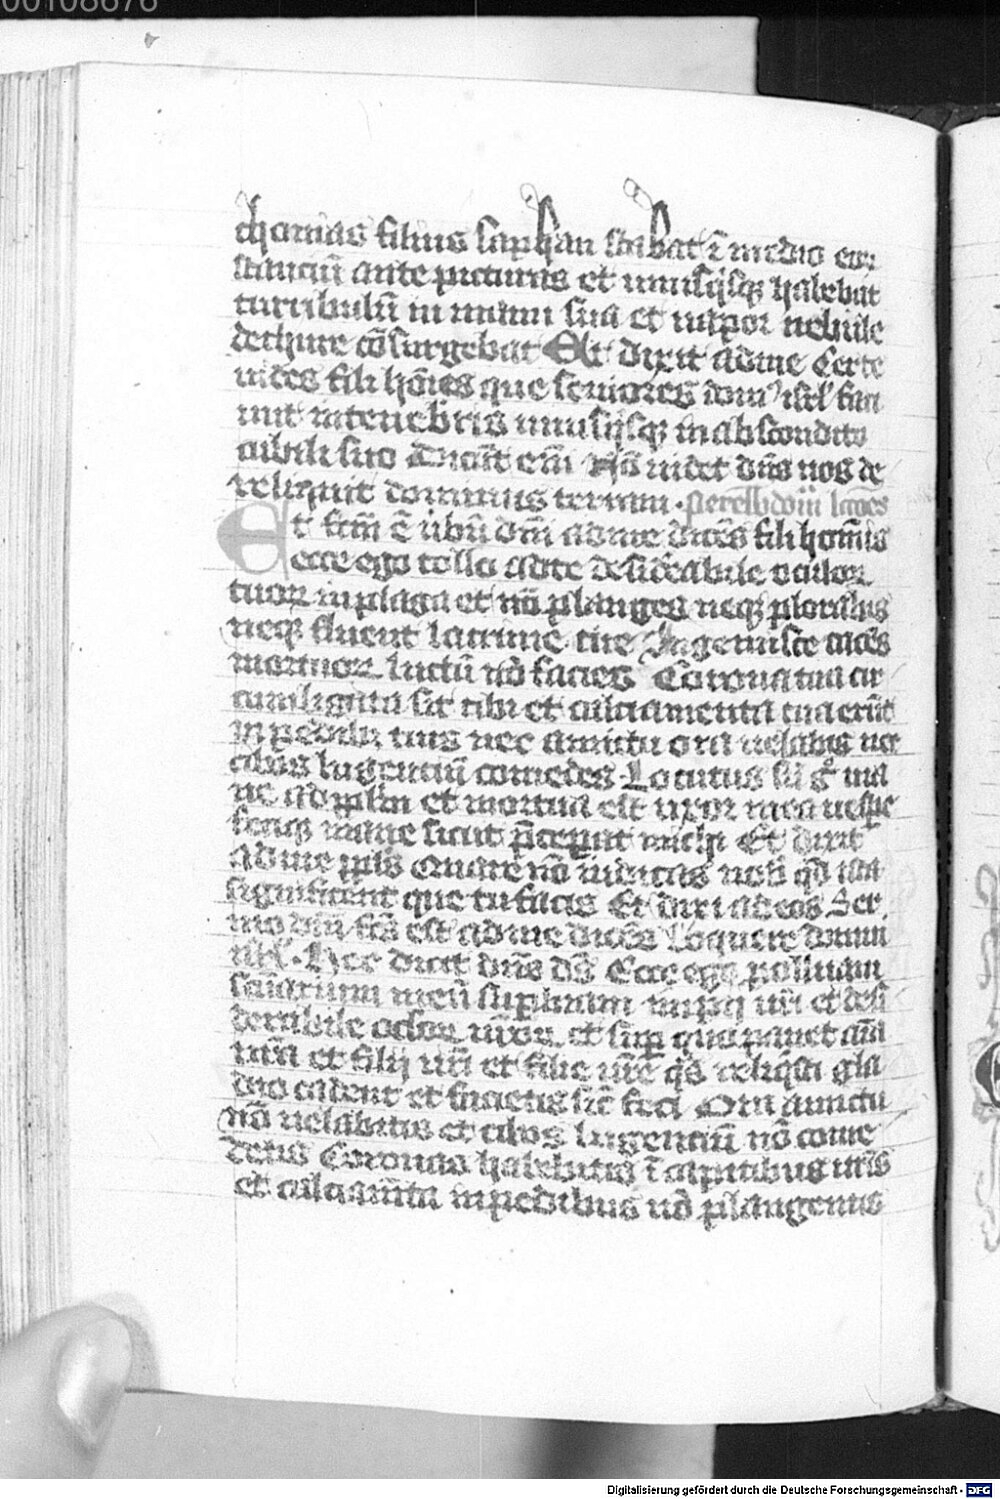 00108676
chonias filius saphan stabat ī medio eor
stanciū ante picturas et unusqͥsqꝫ habebat
turribulū in manu sua et vapor nebule
de thure cōsurgebat Et dixit ad me Certe
vides fili hoīes que seniores domꝰ isrl̄ faci
unt in tenebris unusqͥsqꝫ in abscondito
cubili suo Dicūt em̄ Nō videt dn̄s nos de
reliquit dominus terram
Et fcm̄ ē ūbū dn̄i ad me dicēs fili homīs
ecce ego tollo a te desid̓abile oculoꝝ
tuoꝝ in plaga et nō planges neqꝫ plorabis
neqꝫ fluent lacrime tue Ingemisce tacēs
mortuoꝝ luctū nō facies Corona tua cir
cumligata sit tibi et calciamenta tua erūt
in pedibꝫ tuis nec amictu ora velabis nec
cibos lugenciū comedes Locutus sū gͦ ma
ne ad pplm̄ et mortua est uxor mea vespe
feciqꝫ mane sicut p̄ceperat michi Et dixit
ad me ppl̄s Quare nō indicas nob̄ qd̄ ista
significent que tu facis Et dixi ad eos Ser
mo dn̄i fcs̄ est ad me dicēs Loquere domui
isrl̄ Hec dicit dn̄s ds̄ Ecce ego polluam
sc̄uarium meū supbiam imperij vr̄i et desi
derabile ocloꝝ vr̄oꝝ et suꝑ quo pauet aīa
vr̄a et filij vr̄i et filie vr̄e qͣs reliqͥstis gla
dio cadent et facietis sic̄ feci Ora amictu
nō velabitis et cibos lugenciū nō come
detis Coronas habebitis ī capitibus vr̄is
et calciam̄ta in pedibus nō plangetis
Digitalisierung gefördert durch die Deutsche Forschungsgemeinschaft - DFG